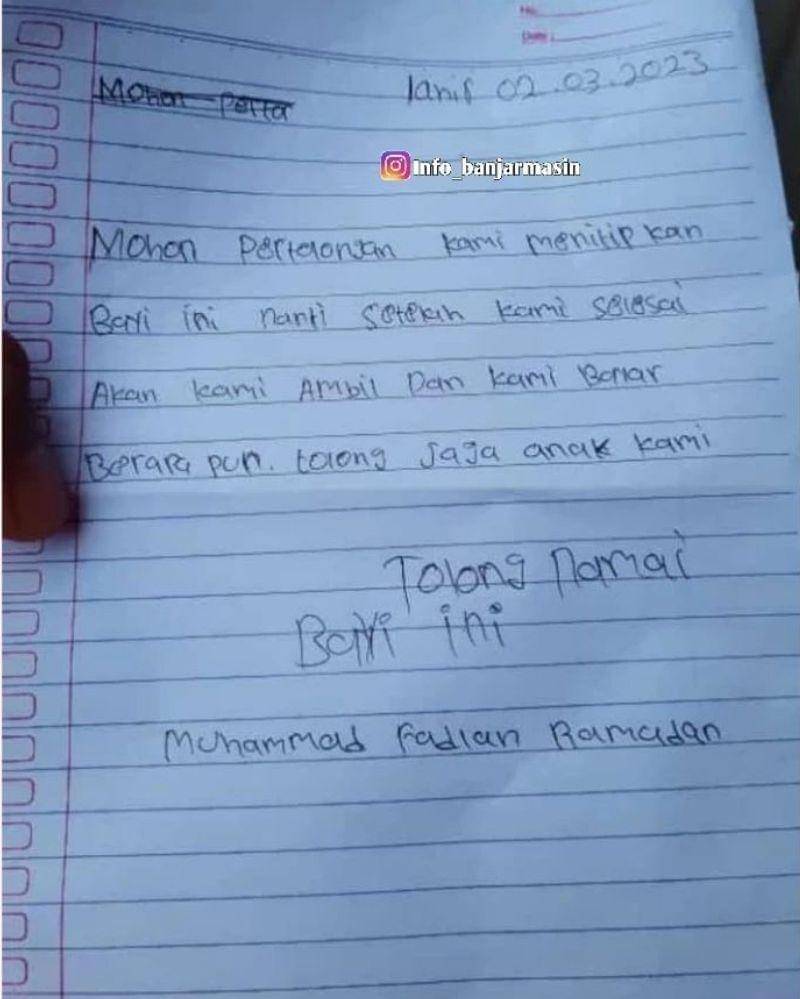 No:
Date:
Mohon Perta
lahir 02.03.2023
Info_banjarmasin
Mohon Pertaonjan kami menitipkan
Bayi ini nanti setelah kami selesai
Akan kami Ambil Dan kami Bayar
Berapa pun. tolong jaga anak kami
Tolong Namai
Bayi ini
Muhammad Fadlan Ramadan